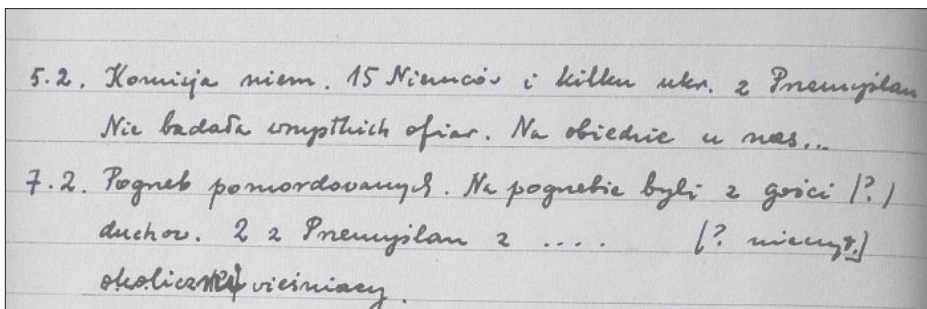 5.2. Komisja niem. 15 Niemców i kilku ukr. z Przemyślan
Nie badała wszystkich ofiar. Na obiedzie u nas...
7.2. Pogrzeb pomordowanych. Na pogrzebie byli z gości (?)
duchow. 2 z Przemyślan z .... [? nieczyt.]
okoliczni wieśniacy.